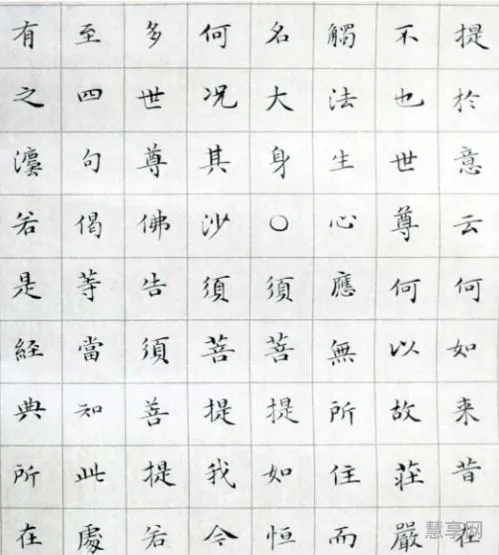 提於意云何如来昔在
不也世尊何以故莊嚴
觸法生心應無所住而
名大身○須菩提如恒
何况其沙須菩提我今
多世尊佛告須菩提若
至四句偈等當知此處
有之若是經典所在
慧享网